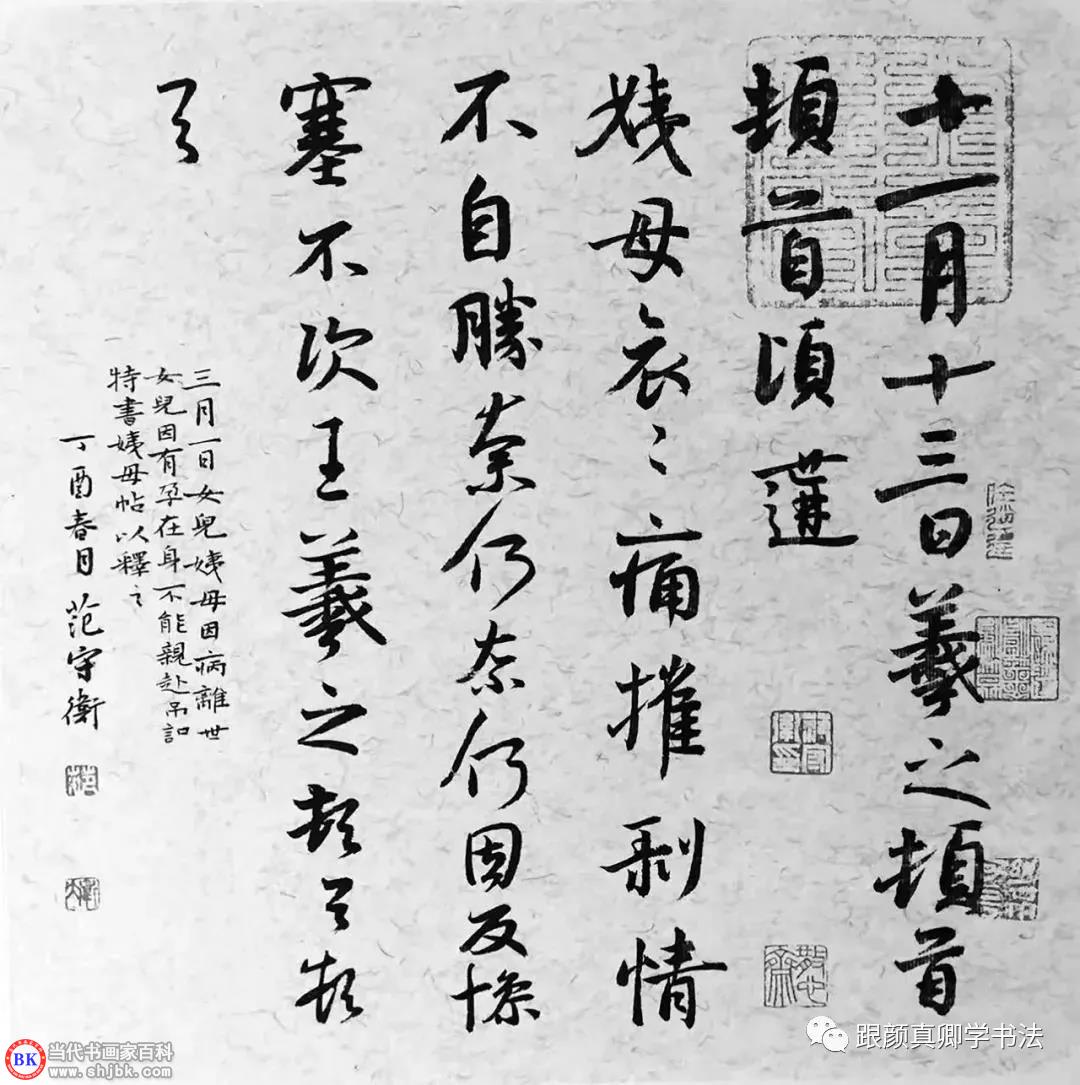 十一月十三日羲之頓首
頓首頃遘
姨母哀〻痛摧剥情
不自勝奈何奈何因反慘
塞不次王羲之頓首頓
首
三月一日女兒姨母因病離世
女兒因有孕在身不能親赴吊
特書姨母帖以釋之
丁酉春月范守衛
BK 当代书画家百科
www.shjbk.com
跟颜真卿学书法